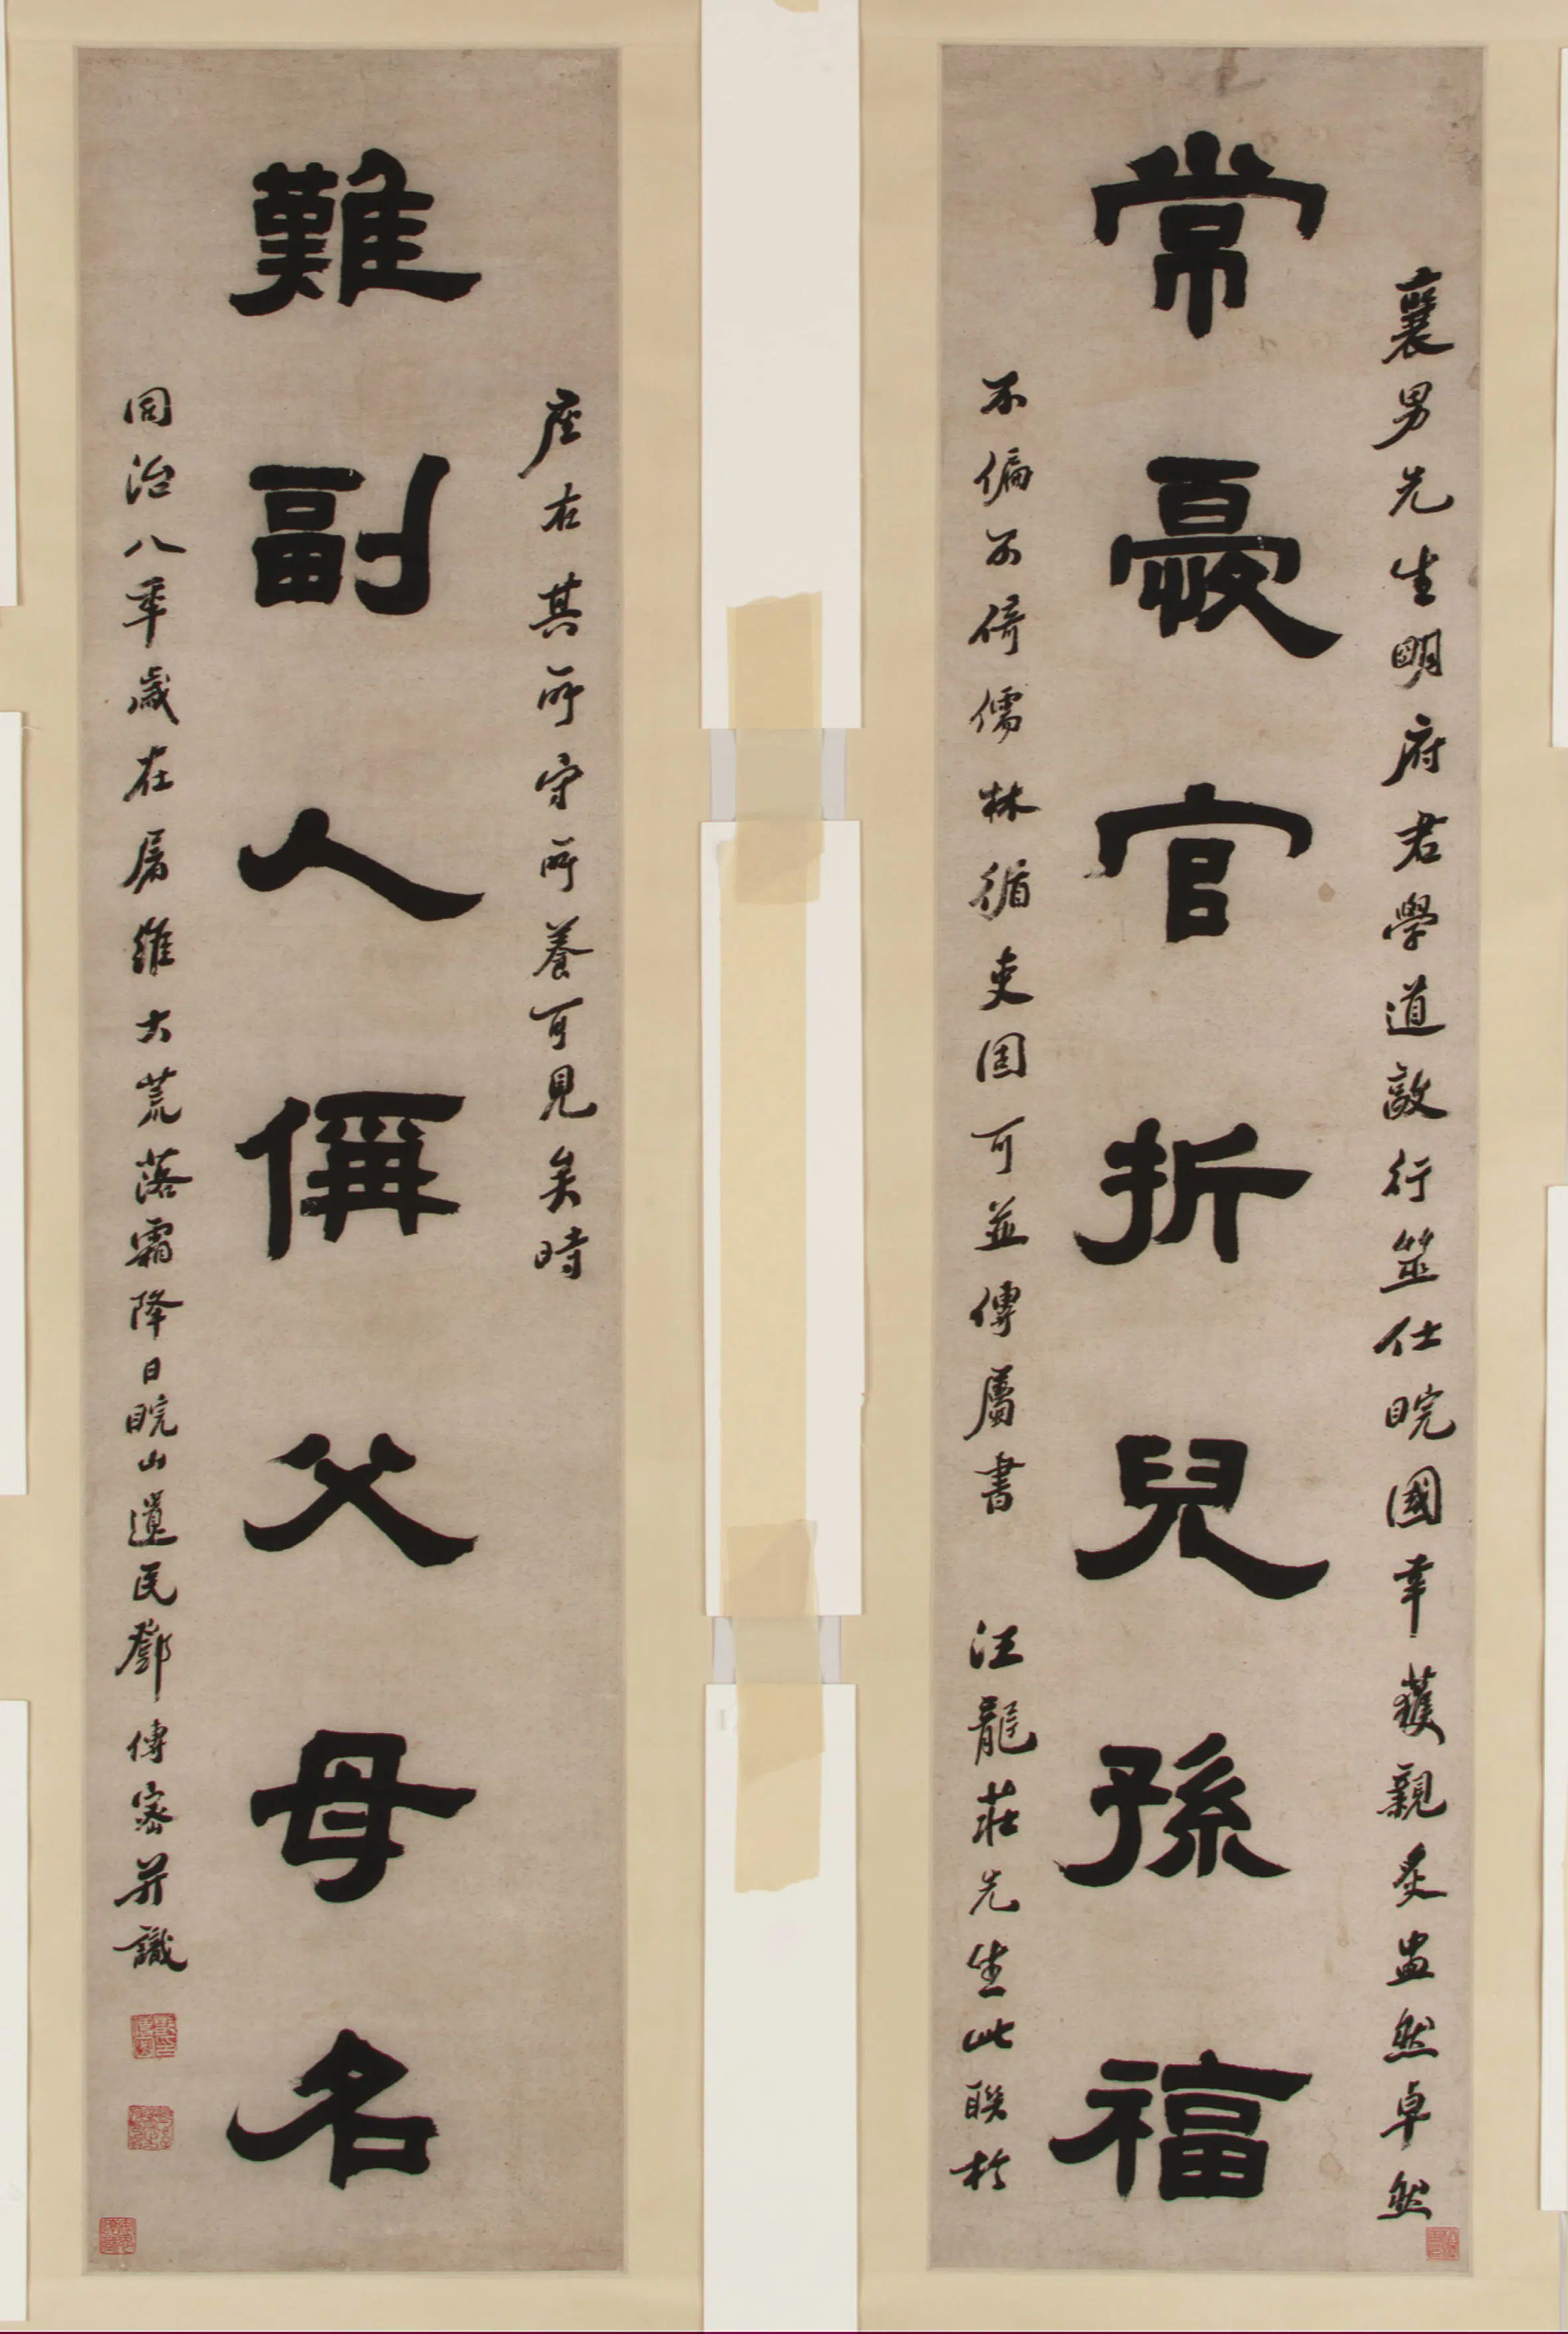 襄男先生明府君學道敵行筮仕晥國幸獲親炙盅然卓然
常憂官折兒孫福
不偏不倚儒林循吏固可並傳屬書 汪龍莊先生此聯於
座右其所守所養可見矣時
難副人偁父母名
同治八年歲在屠維大荒落霜降日晥山遺民鄧傳密并識